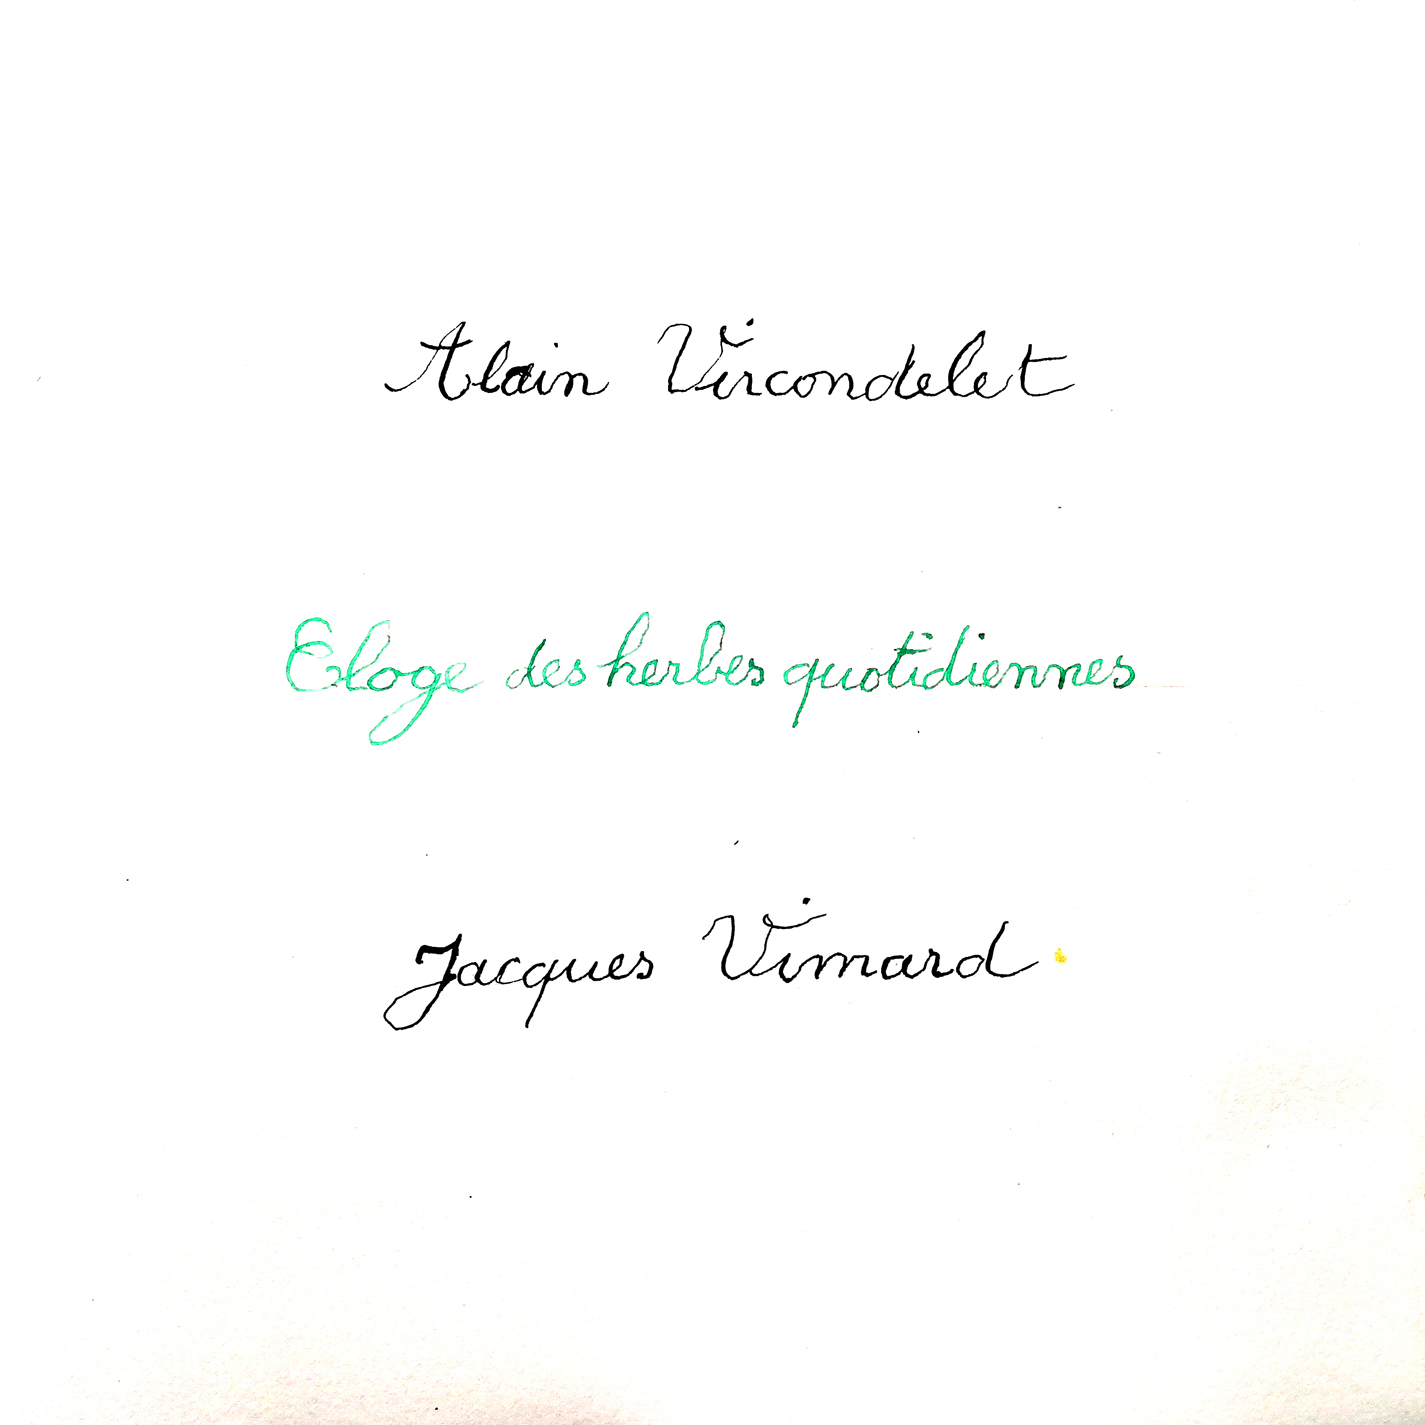 Alain Vircondelet
Eloge des herbes quotidiennes
Jacques Vimard